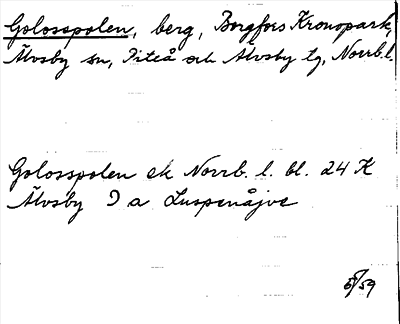 Golosspolen, berg, Borgfors Kronopark,
Älvsby sn, Piteå och Älvsby tg, Norrb. l.
Golosspolen ek Norrb. l. bl. 24 K
Älvsby I a Luspenåjve
5/59